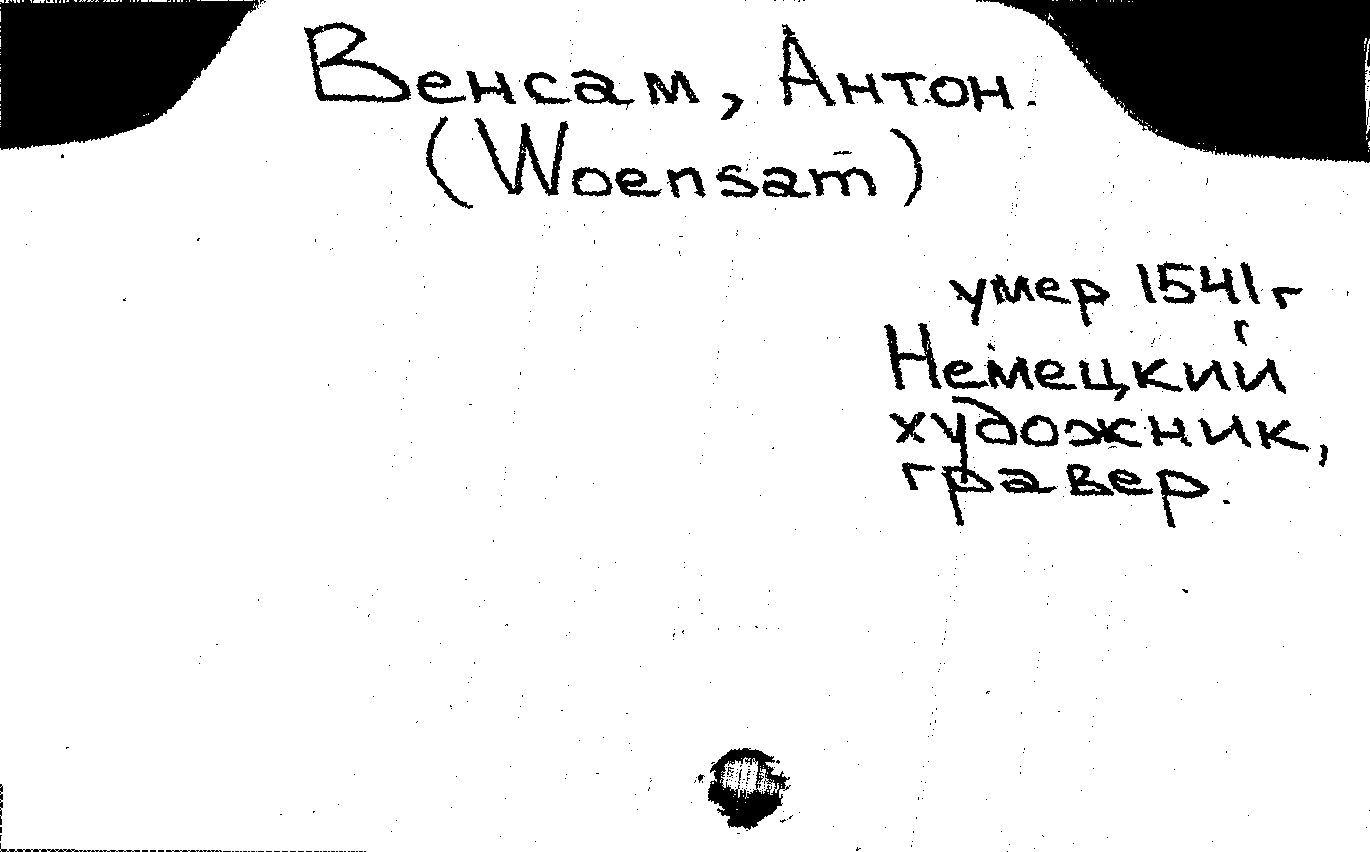 Венсам, Антон.
(Woensam)
умер 1541 г
Немецкий
художник,
гравер.